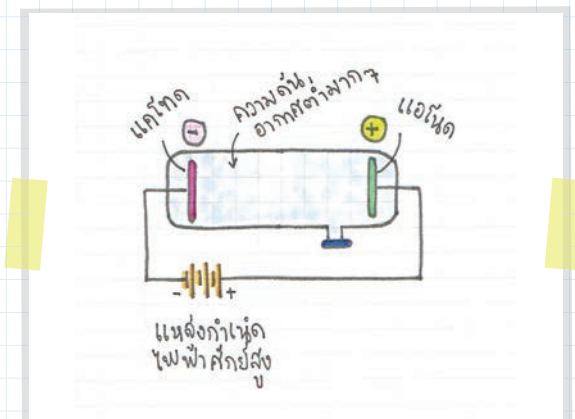 แคโทด
-
ความดัน
อากาศต่ำมากๆ
+
แอโนด
- +
แหล่งกำเนิด
ไฟฟ้าศักย์สูง